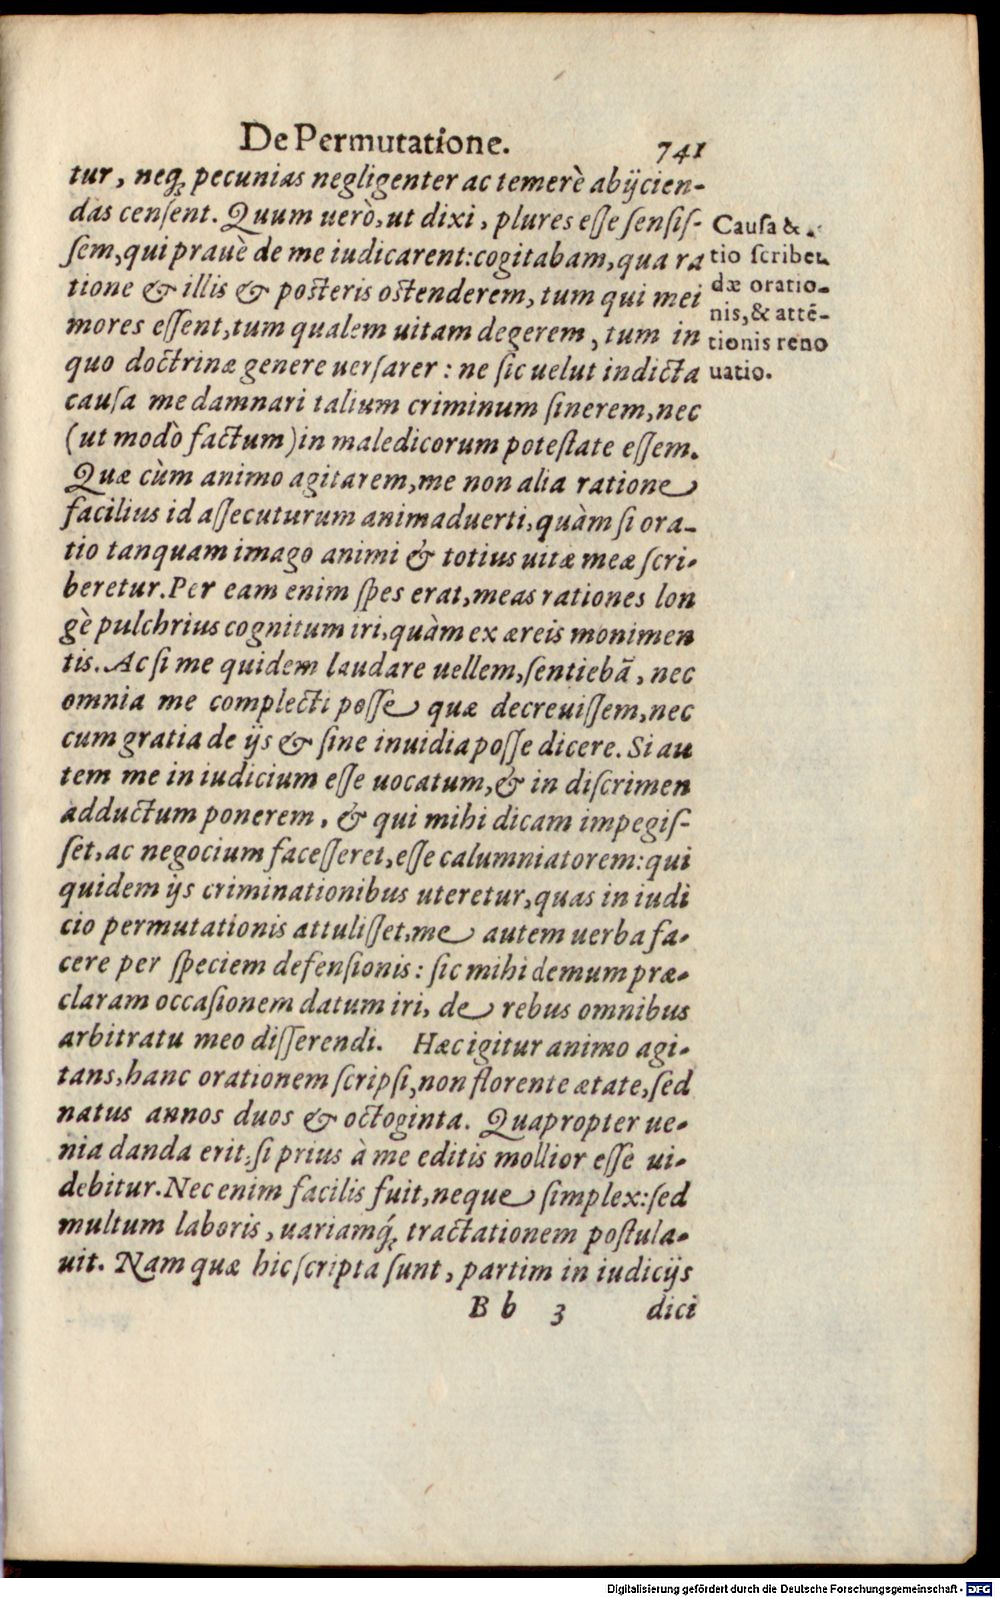 De Permutatione. 741
tur, neq; pecunias negligenter ac temerè abijcien-
das censent. Quum uerò, ut dixi, plures esse sensis-
sem, qui prauè de me iudicarent: cogitabam, qua ra
tione & illis & posteris ostenderem, tum qui mei
mores essent, tum qualem uitam degerem, tum in
quo doctrinæ genere uersarer: ne sic uelut indicta
causa me damnari talium criminum sinerem, nec
(ut modò factum) in maledicorum potestate essem.
Quæ cùm animo agitarem, me non alia ratione
facilius id assecuturum animaduerti, quàm si ora-
tio tanquam imago animi & totius uitæ meæ scri-
beretur. Per eam enim spes erat, meas rationes lon
gè pulchrius cognitum iri, quàm ex æreis monimen
tis. Ac si me quidem laudare uellem, sentiebā, nec
omnia me complecti posse quæ decreuissem, nec
cum gratia de ijs & sine inuidia posse dicere. Si au
tem me in iudicium esse uocatum, & in discrimen
adductum ponerem, & qui mihi dicam impegis-
set, ac negocium facesseret, esse calumniatorem: qui
quidem ijs criminationibus uteretur, quas in iudi
cio permutationis attulisset, me autem uerba fa-
cere per speciem defensionis: sic mihi demum præ-
claram occasionem datum iri, de rebus omnibus
arbitratu meo disserendi. Hæc igitur animo agi-
tans, hanc orationem scripsi, non florente ætate, sed
natus annos duos & octoginta. Quapropter ue-
nia danda erit, si prius à me editis mollior esse ui-
debitur. Nec enim facilis fuit, neque simplex: sed
multum laboris, uariamq́; tractationem postula-
uit. Nam quæ hic scripta sunt, partim in iudicijs
B b 3 dici
Causa &
tio scriben
dæ oratio-
nis, & attē-
tionis reno
uatio.
Digitalisierung gefördert durch die Deutsche Forschungsgemeinschaft - DFG